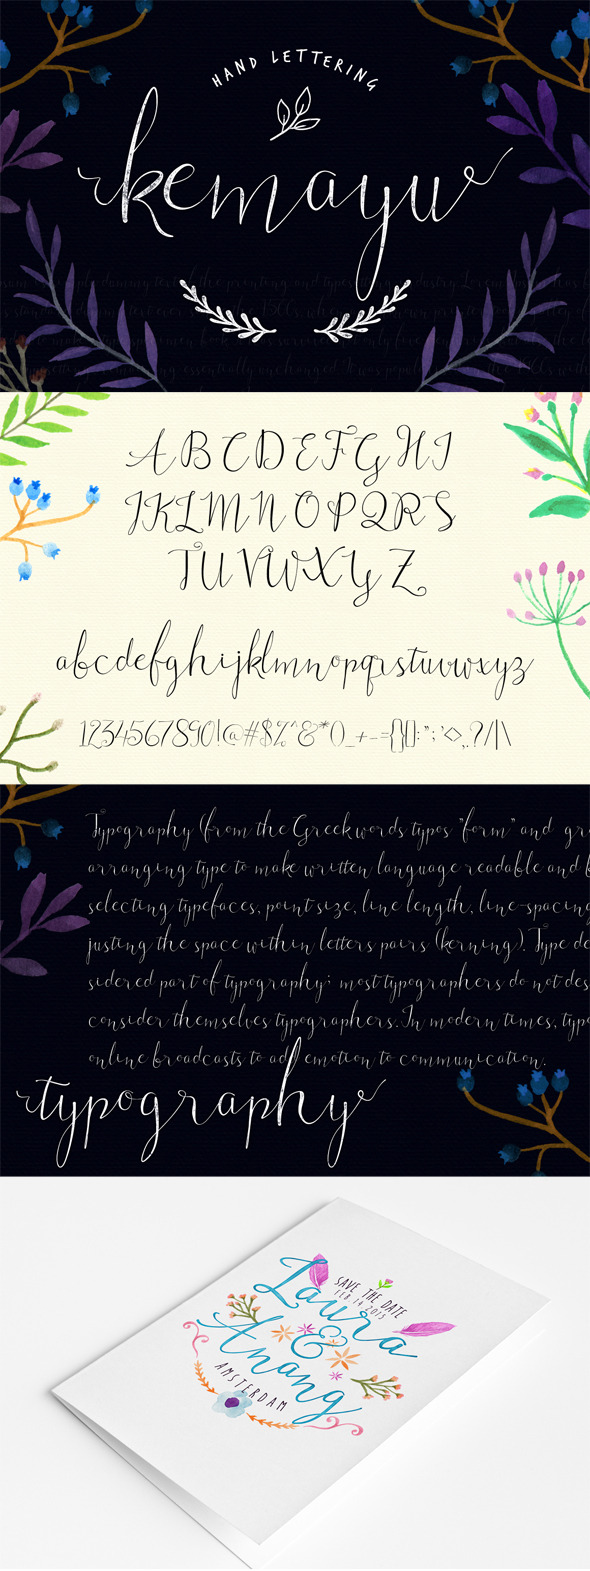 HAND LETTERING
kemayu
A B C D E F G H I
J K L M N O P Q R S
T U V W X Y Z
abcdefghijklmnopqrstuvwxyz
1234567890!@#$%^&*()_+-={}[]:";'<>,.?/|\
Typography (from the Greek words typos "form" and gr
arranging type to make written language readable and
selecting typefaces, point size, line length, line-spacing
justing the space within letters pairs (kerning). Type de
sidered part of typography; most typographers do not des
consider themselves typographers. In modern times, typo
online broadcasts to add emotion to communication.
typography
SAVE THE DATE
FEB.14.2015
Laura
&
Anang
AMSTERDAM